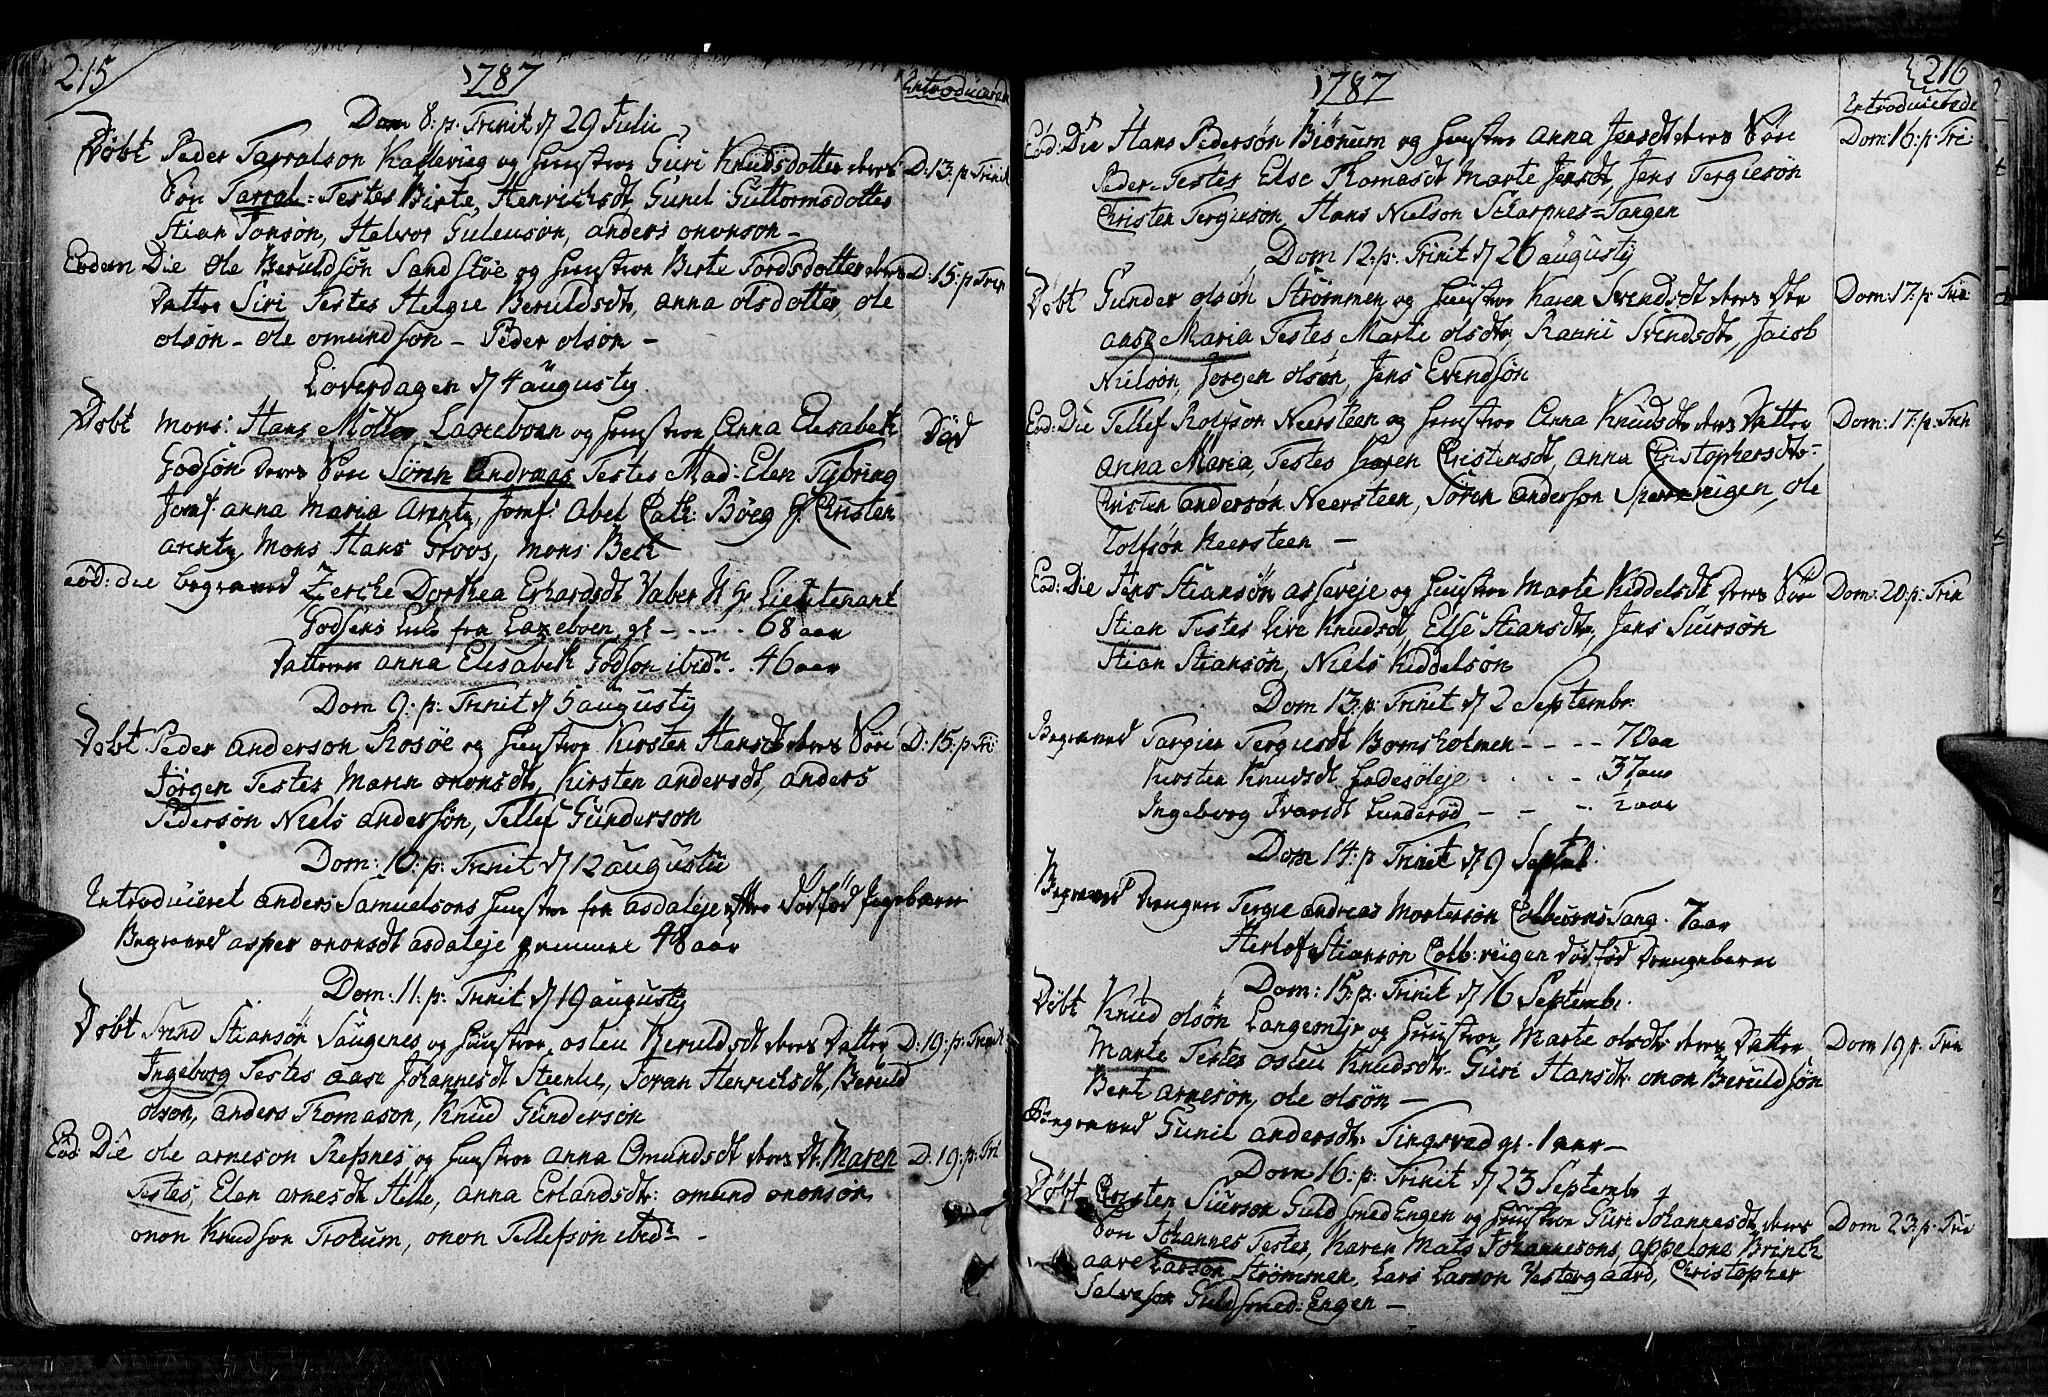 215
1787
Introduceret
Dom 8: p: Trinit d 29 Julii
Døbt Peder Tarralson Kallevieg og Hustroe Guri Knudsdotter deres D: 13: p: Trinit
Søn Tarral = Testes Birte Henrichsdt, Gunil Guttormsdotter
Stian Torsøn, Halvor Gulleusøn, anders ononson -
Eodem Die ole Beruldsøn Sandstøe og Hustroe Birte Tordsdotter deres D: 15: p: Trin
Datter Siri Testes Helgie Beruldsdt, anna olsdotter, ole
olsøn - ole omundson - Peder olsøn -
Løverdagen d 4 augusty
Døbt Mons: Hans Møller Laxeboen og Hustroe Anna Elisabeth Død
Godsøn deres Søn Søren Andreas Testes Mad: Elen Tybring
Jomf. anna Maria Arentz, Jomf: Abel Cath: Bøeg Hr Christen
arentz Mons Hans Groos, Mons Beck
eod: die begraved Zerche Dorthea Erhardsdt Vaber Hr Lieutenant
Godsens Enke fra Laxeboen gl - - - - 68 aar
Datteren anna Elisabeth Godson ibidn. : 46 aar
Dom 9: p: Trinit d 5 augusty
Døbt Peder anderson Rosøe og Hustroe Kirsten Hansdt deres Søn D: 15: p Tri:
Jørgen Testes Maren ononsdt, Kirsten andersdt, anders
Pedersøn Niels andersøn, Tellef Gunderson
Dom: 10: p: Trinit d 12 augusti
Introduceret anders Samuelsons Hustroe fra asdaleje efter Dødfød Pigebarn
Begraved asper ononsdt asdaleje gammel 48 aar
Dom: 11: p: Trinit d 19 augusty
Døbt Svend Stiansøn Saugenes og Hustroe osleu Beruldsdt deres Datter D: 19: p: Trinit
Ingeborg Testes aase Johannesdt Steenke, Joran Henrichsdt, Beruld
olson, anders Thomason, Knud Gunderson
Eod: Die ole arneson Refsnes og Hustroe anna Omundsdt deres dt. Maren D: 19: p: Tri
Testes, Elen arnesdt Helle, anna Erlandsdt: omund ononsøn
onon Knudsøn Trolum, onon Tellefsøn ibidn -
216
1787
Introducerede
Eod: Die Hans Pedersøn Biønum og Hustroe Anna Jensdt deres Søn Dom 16: p: Tri
Peder - Testes Else Thomasdt Marte Jensdt, Jens Tergiesøn
Christen Tergiesøn, Hans Nielson Scharpnes = Tangen
Dom 12: p: Trinit d 26 augusty
Døbt Gunder olsøn Strømmen og Hustroe Karen Svendsdt deres Dtr Dom: 17: p: Trin
aase Maria Testes Marte olsdt, Raani Svendsdt, Jacob
Nielsøn, Jørgen olsøn, Jens Evendsøn
Eod: Die Tellef Rolfson Neersteen og Hustroe Anna Knudsdt deres Datter Dom: 17: p: Trin
anna Maria, Testes Karen Christensdt, anna Christophersdt:
Christen andersøn Neersteen, Søren anderson Sparrevigen, ole
Tolfsøn Neersteen -
Eod: Die Jens Stiansøn asseveje og Hustroe Marte Kiddelsdt deres Søn Dom: 20: p: Trin
Stian Testes Live Knudsdt, Else Stiansdt, Jens Siursøn
Stian Stiansøn, Niels Kiddelsøn
Dom 13: p: Trinit d 2 Septembr
Begraved Targier Tergiesdt Bomsholmen - - - - 70 aar
Kirsten Knudsdt Hadesøleje - - - - 37 aar
Ingeborg Ivarsdt Lunderød - - - 1/2 aar
Dom 14: p Trinit d 9 Septbr
Begraved Drengen Tergie andreas Mortensøn Colbiørns Tang. 7 aar
Herlof Stianson Colb: viigen dødfød Drengebarn
Dom: 15: p: Trinit d 16 Septembr.
Døbt Knud olsøn Langemyr og Hustroe Marte olsdt deres Datter Dom 19 p: Trin
Marte Testes osleu Knudsdt. Guri Hansdt. onon Beruldsøn
Bent arnesøn, ole olsøn -
Begraved Gunil andersdt. Tingsved gl. 1 aar -
Dom 16: p: Trinit d 23 Septembr
Døbt Christen Siurson Guldsmed Engen og Hustroe Guri Johannesdt deres Dom 23: p: Trin
Søn Johannes Testes, Karen Mats Johannesons, appelone Brinch
aare Larson Strømmen, Lars Larson Vestergaard, Christopher
Salveson Guldsmed: Engen -